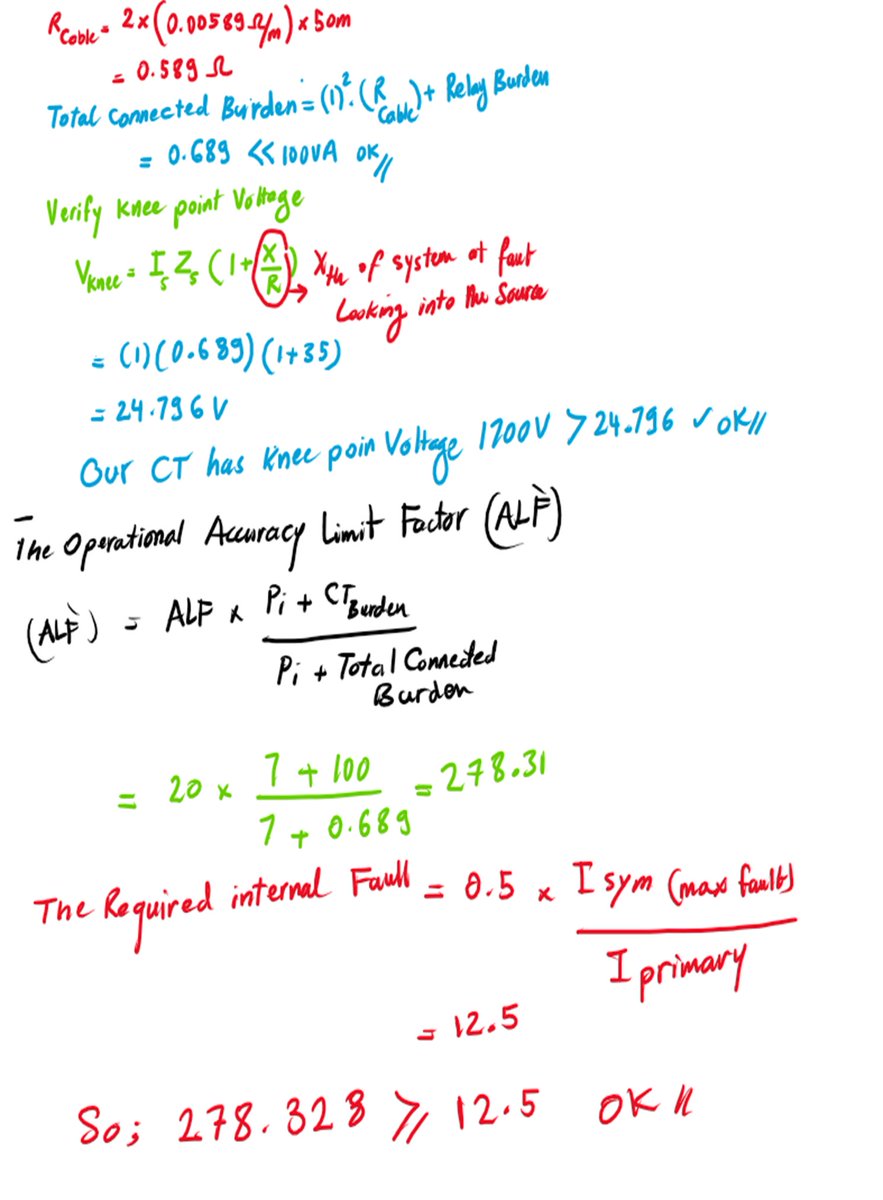 R_Cable = 2×(0.00589Ω/m)×50m
= 0.589 Ω
Total Connected Burden = (1)². (R_Cable) + Relay Burden
= 0.689 << 100VA OK//
Verify Knee point Voltage
V_Knee = I_s Z_s (1+X/R) → X_th of system at faut
Looking into the Source
= (1)(0.689)(1+35)
= 24.796 V
Our CT has Knee poin Voltage 1700V > 24.796 ✓ OK//
The Operational Accuracy Limit Factor (ALF̀)
(ALF̀) = ALF × (Pi + CT_Burden) / (Pi + Total Connected Burden)
= 20 × (7 + 100) / (7 + 0.689) = 278.31
The Required internal Fault = 0.5 × I sym (max fault) / I primary
= 12.5
So; 278.328 ⩾ 12.5 OK //